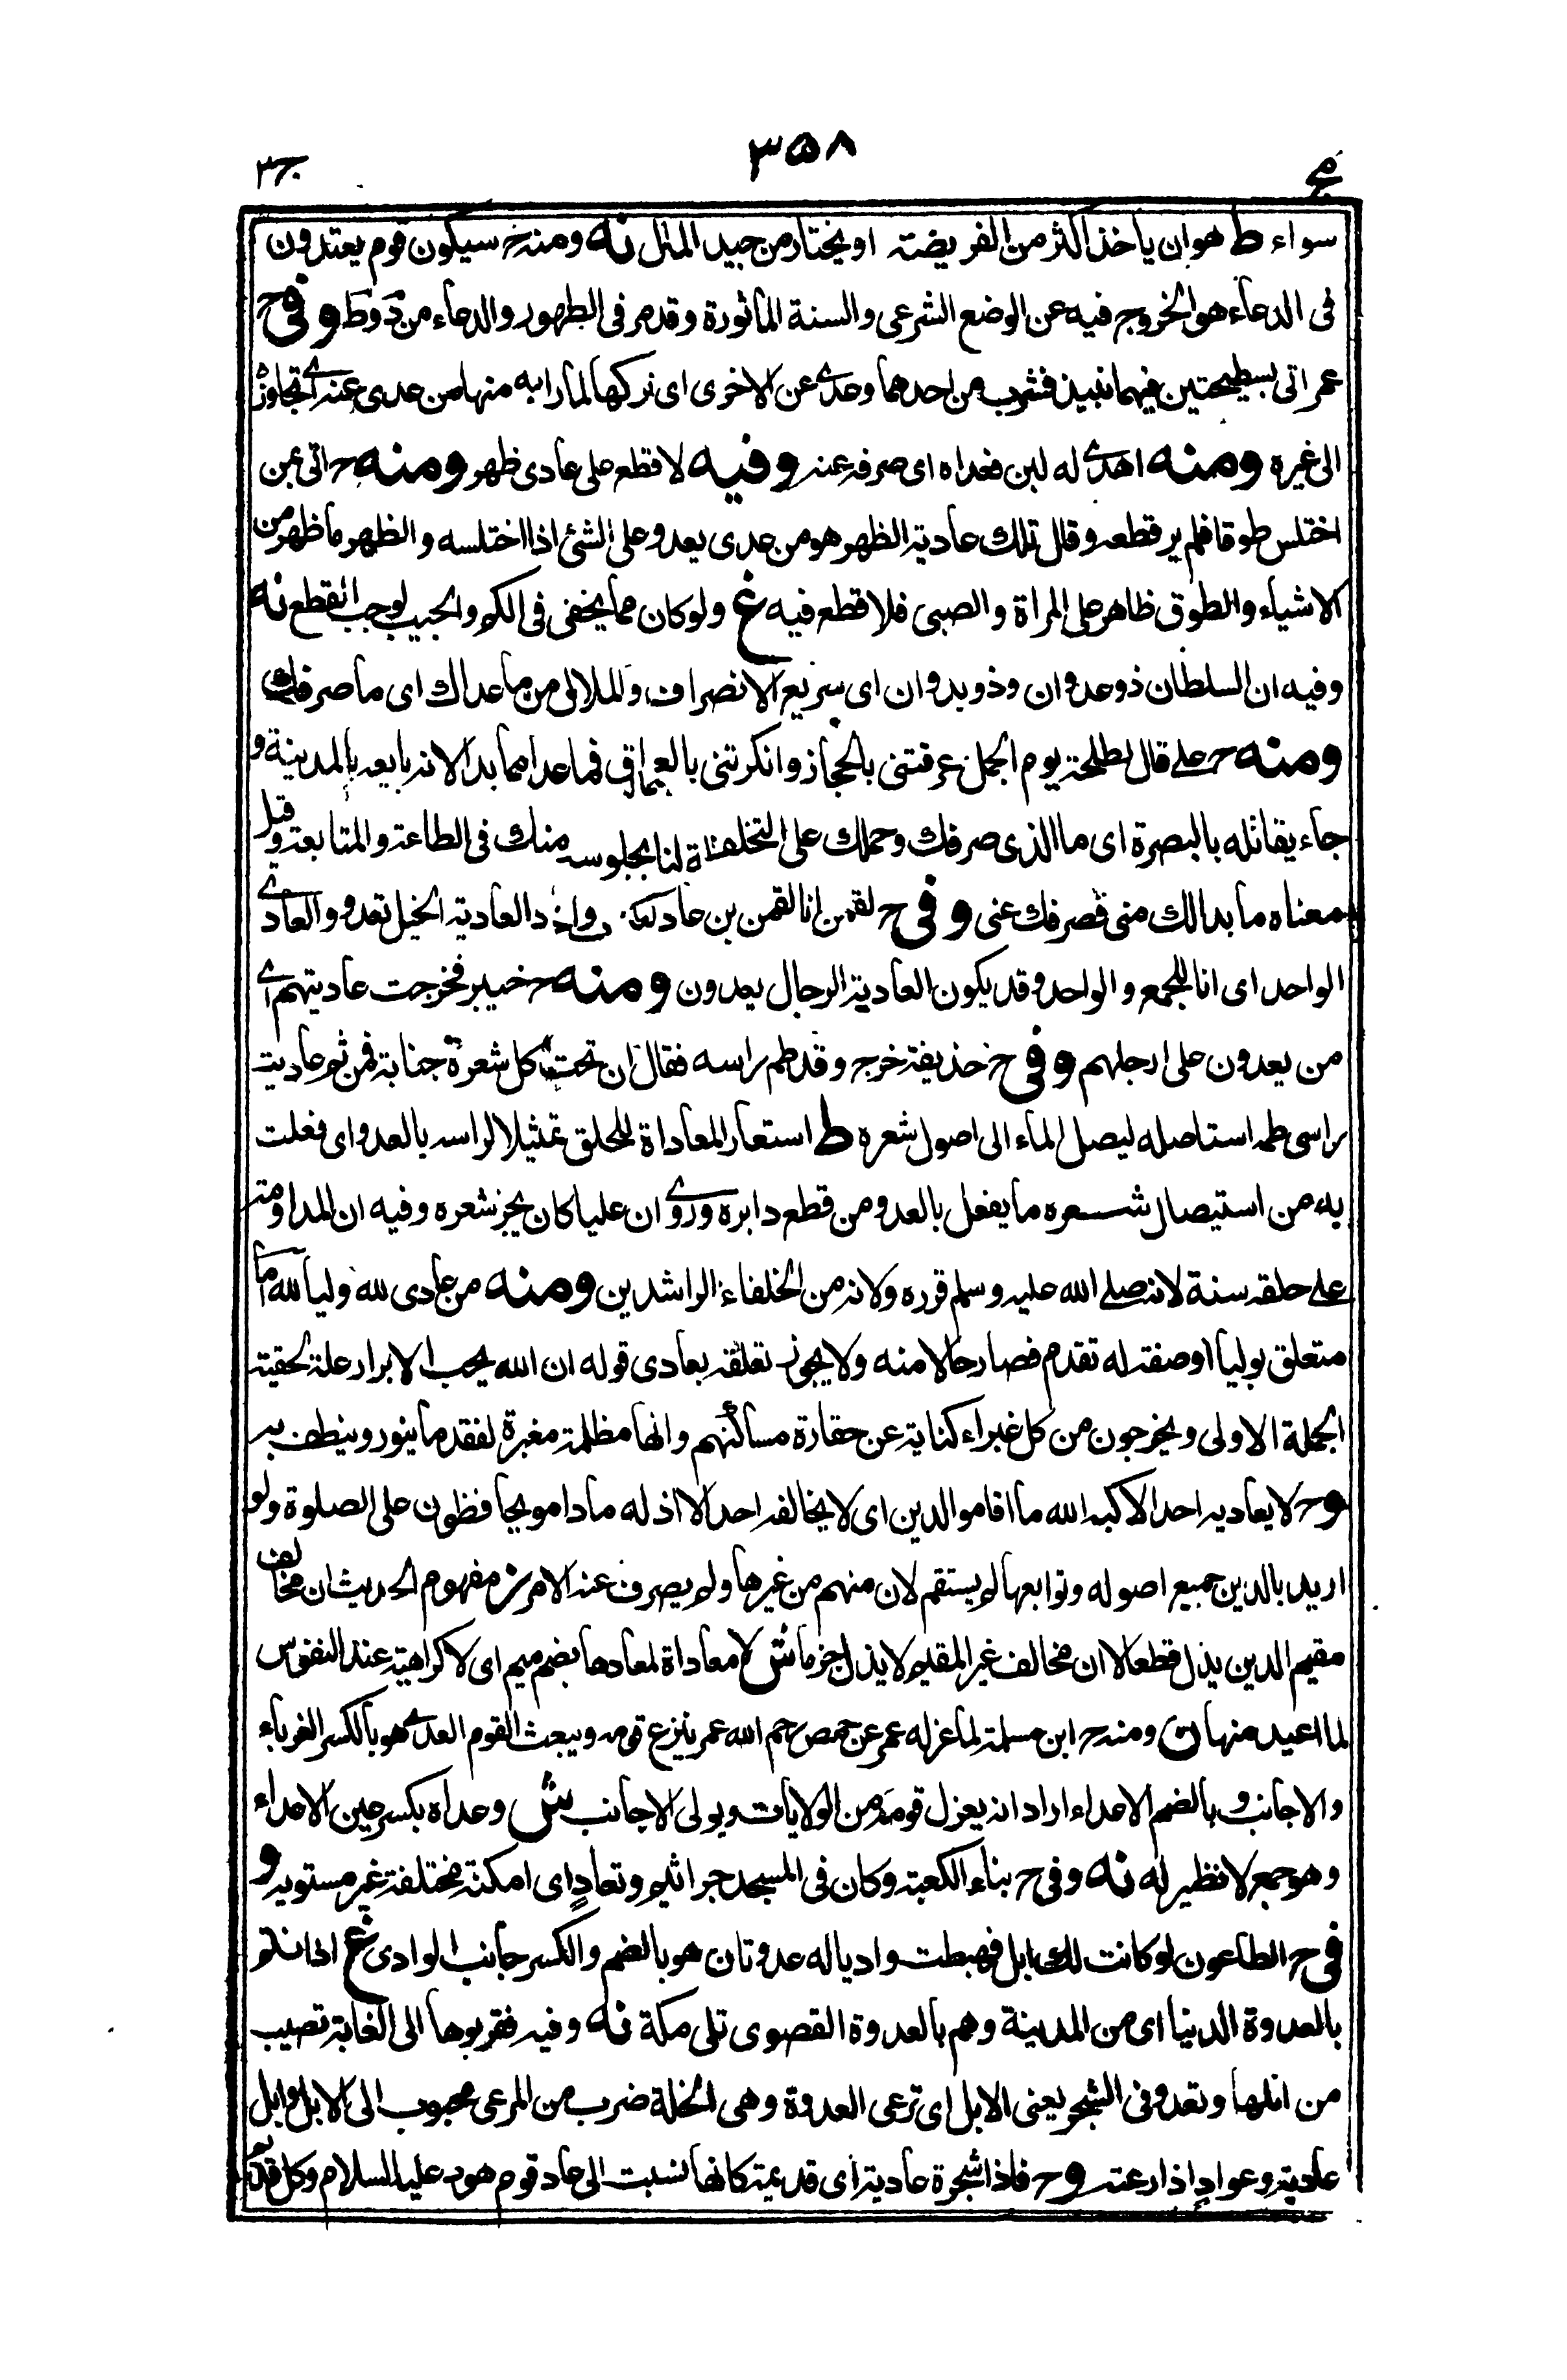 مح ٣٥٨ ج٣
سواء ط هو ان ياخذ اكثر من الفريضة او يختار من جيد المال نه ومنه ح سيكون قوم يعتدون
فى الدعاء هو الخروج فيه عن الوضع الشرعى والسنة الماثورة وقد مر فى الطهور والدعاء من د و ط وفى ح
عمر اتى بسطيحتين فيهما نبيذ فشرب من احدهما وعدى عن الاخرى اى تركها لما رابه منها من عدى عنه اى تجاوز
الى غيره ومنه اهدى له لبن فعداه اى صرفه عنه وفيه لا قطع على عادى ظهر ومنه ح اتى بمن
اختلس طوقا فلم ير قطعه وقال تلك عادية الظهر هو من عدى يعدو على الشئ اذا اختلسه والظهر ما ظهر من
الاشياء والطوق ظاهر على المراة والصبى فلا قطع فيه غ ولو كان مما يخفى فى الكم والجيب لوجب القطع نه
وفيه ان السلطان ذو عدوان وذو بدوان اى سريع الانصراف والملال من ما عداك اى ما صرفك
ومنه ح على قال لطلحة يوم الجمل عرفتنى بالحجاز وانكرتنى بالعراق فما عدا مما بدا لانه بايعه بالمدينة و
جاء يقاتله بالبصرة اى ما الذى صرفك وحملك على التخلف منك فى الطاعة والمتابعة وقيل
معناه ما بدا لك منى فصرفك عنى وفى ح لقمن انا لقمن بن عاد العادية الخيل تعدو والعادى
الواحد اى انا للجمع والواحد وقد يكون العادية الرجال يعدون ومنه ح خيبر فخرجت عاديتهم اى
من يعدون على ارجلهم وفى ح حذيفة خرج وقد طم راسه فقال ان تحت كل شعرة جنابة فمن ثم عاديت
راسى طمه استاصله ليصل الماء الى اصول شعره ط استعار المعاداة للحلق تمثيلا لراسه بالعدو اى فعلت
به من استيصال شعره ما يفعل بالعدو من قطع دابره وروى ان عليا كان يجز شعره وفيه ان المداومة
على حلقه سنة لانه صلى الله عليه وسلم قرره ولانه من الخلفاء الراشدين ومنه من عادى لله وليا لله اما
متعلق بوليا او صفة له تقدم فصار حالا منه ولا يجوز تعلقه بعادى قوله ان الله يحب الابرار علة لحقية
الجملة الاولى ويخرجون من كل غبراء كناية عن حقارة مساكنهم وانها مظلمة مغبرة لفقد ما ينور وينظف به
وح لا يعاديه احد الا كبه الله ما اقاموا الدين اى لا يخالفه احد الا اذله ما داموا يحافظون على الصلوة ولو
اريد بالدين جميع اصوله وتوابعها لم يستقم لان منهم من غيرها ولم يصرف عنه الامر ز مفهوم الحديث ان مخالف
مقيم الدين يذل قطعا لا ان مخالف غير المقيم لا يذل جزما ش لا معاداة لمعادها بضم ميم اى لا كراهية عند النفوس
لما اعيد منها ن ومنه ح ابن مسلمة لما عزله عمر عن حمص رحم الله عمر ينزع قومه ويبعث القوم العدى هو بالكسر الغرباء
والاجانب وبالضم الاعداء اراد انه يعزل قومه من الولايات ويولى الاجانب ش وعداه بكسر عين الاعداء
وهو جمع لا نظير له نه وفى ح بناء الكعبة وكان فى المسجد جراثيم وتعاد اى امكنة مختلفة غير مستوية و
فى ح الطاعون لو كانت لك ابل فهبطت واديا له عدوتان هو بالضم والكسر جانب الوادى غ اذ انتم
بالعدوة الدنيا اى من المدينة وهم بالعدوة القصوى تلى مكة نه وفيه فقربوها الى الغابة تصيب
من اثلها وتعدو فى الشجر يعنى الابل اى ترعى العدوة وهى الخلة ضرب من المرعى محبوب الى الابل وابل
عادية وعواد اذا رعته وح فاذا شجرة عادية اى قديمة كانها نسبت الى عاد قوم هود عليه السلام وكل قديم